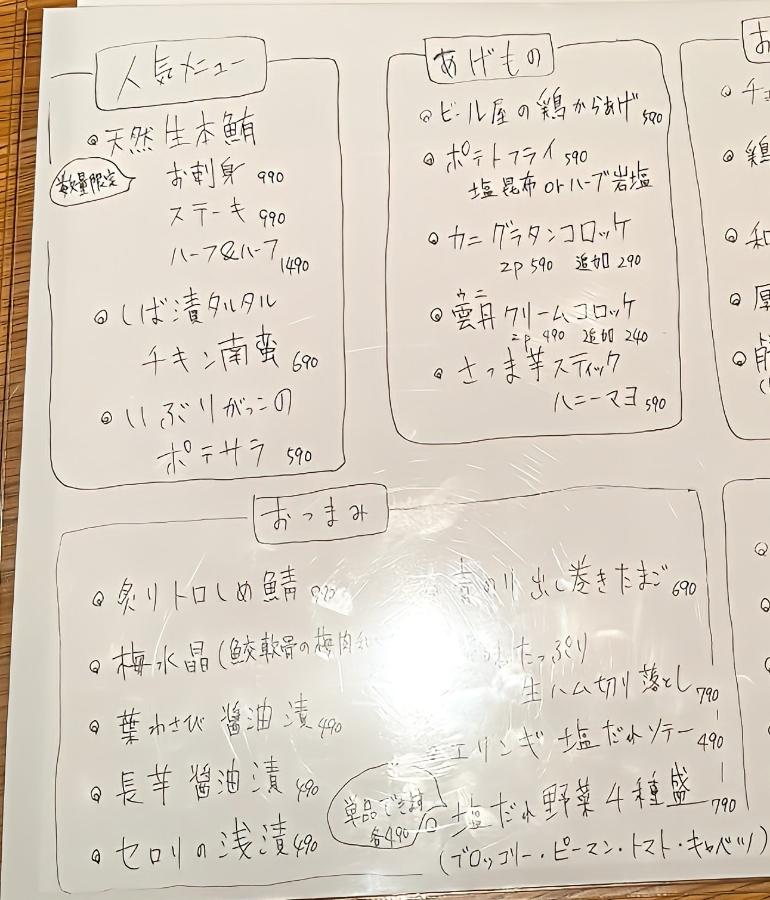 人気メニュー
天然生本鮪
数量限定
お刺身 990
ステーキ 990
ハーフ&ハーフ 1490
しば漬タルタル
チキン南蛮 690
いぶりがっこの
ポテサラ 590
あげもの
ビール屋の鶏からあげ 590
ポテトフライ 590
塩昆布orハーブ岩塩
カニグラタンコロッケ
2P 590 追加 290
ウニ
雲丹クリームコロッケ
2P 490 追加 240
さつま芋スティック
ハニーマヨ 590
お
チ
鶏
和
厚
おつまみ
炙りトロしめ鯖
梅水晶(鮫軟骨の梅肉
葉わさび醤油漬 490
長芋醤油漬 490
セロリの浅漬 490
のり出し巻きたまご 690
たっぷり
生ハム切り落とし 790
エリンギ塩だれソテー 490
単品でき〼
各490
塩だれ野菜4種盛 790
(ブロッコリー・ピーマン・トマト・キャベツ)